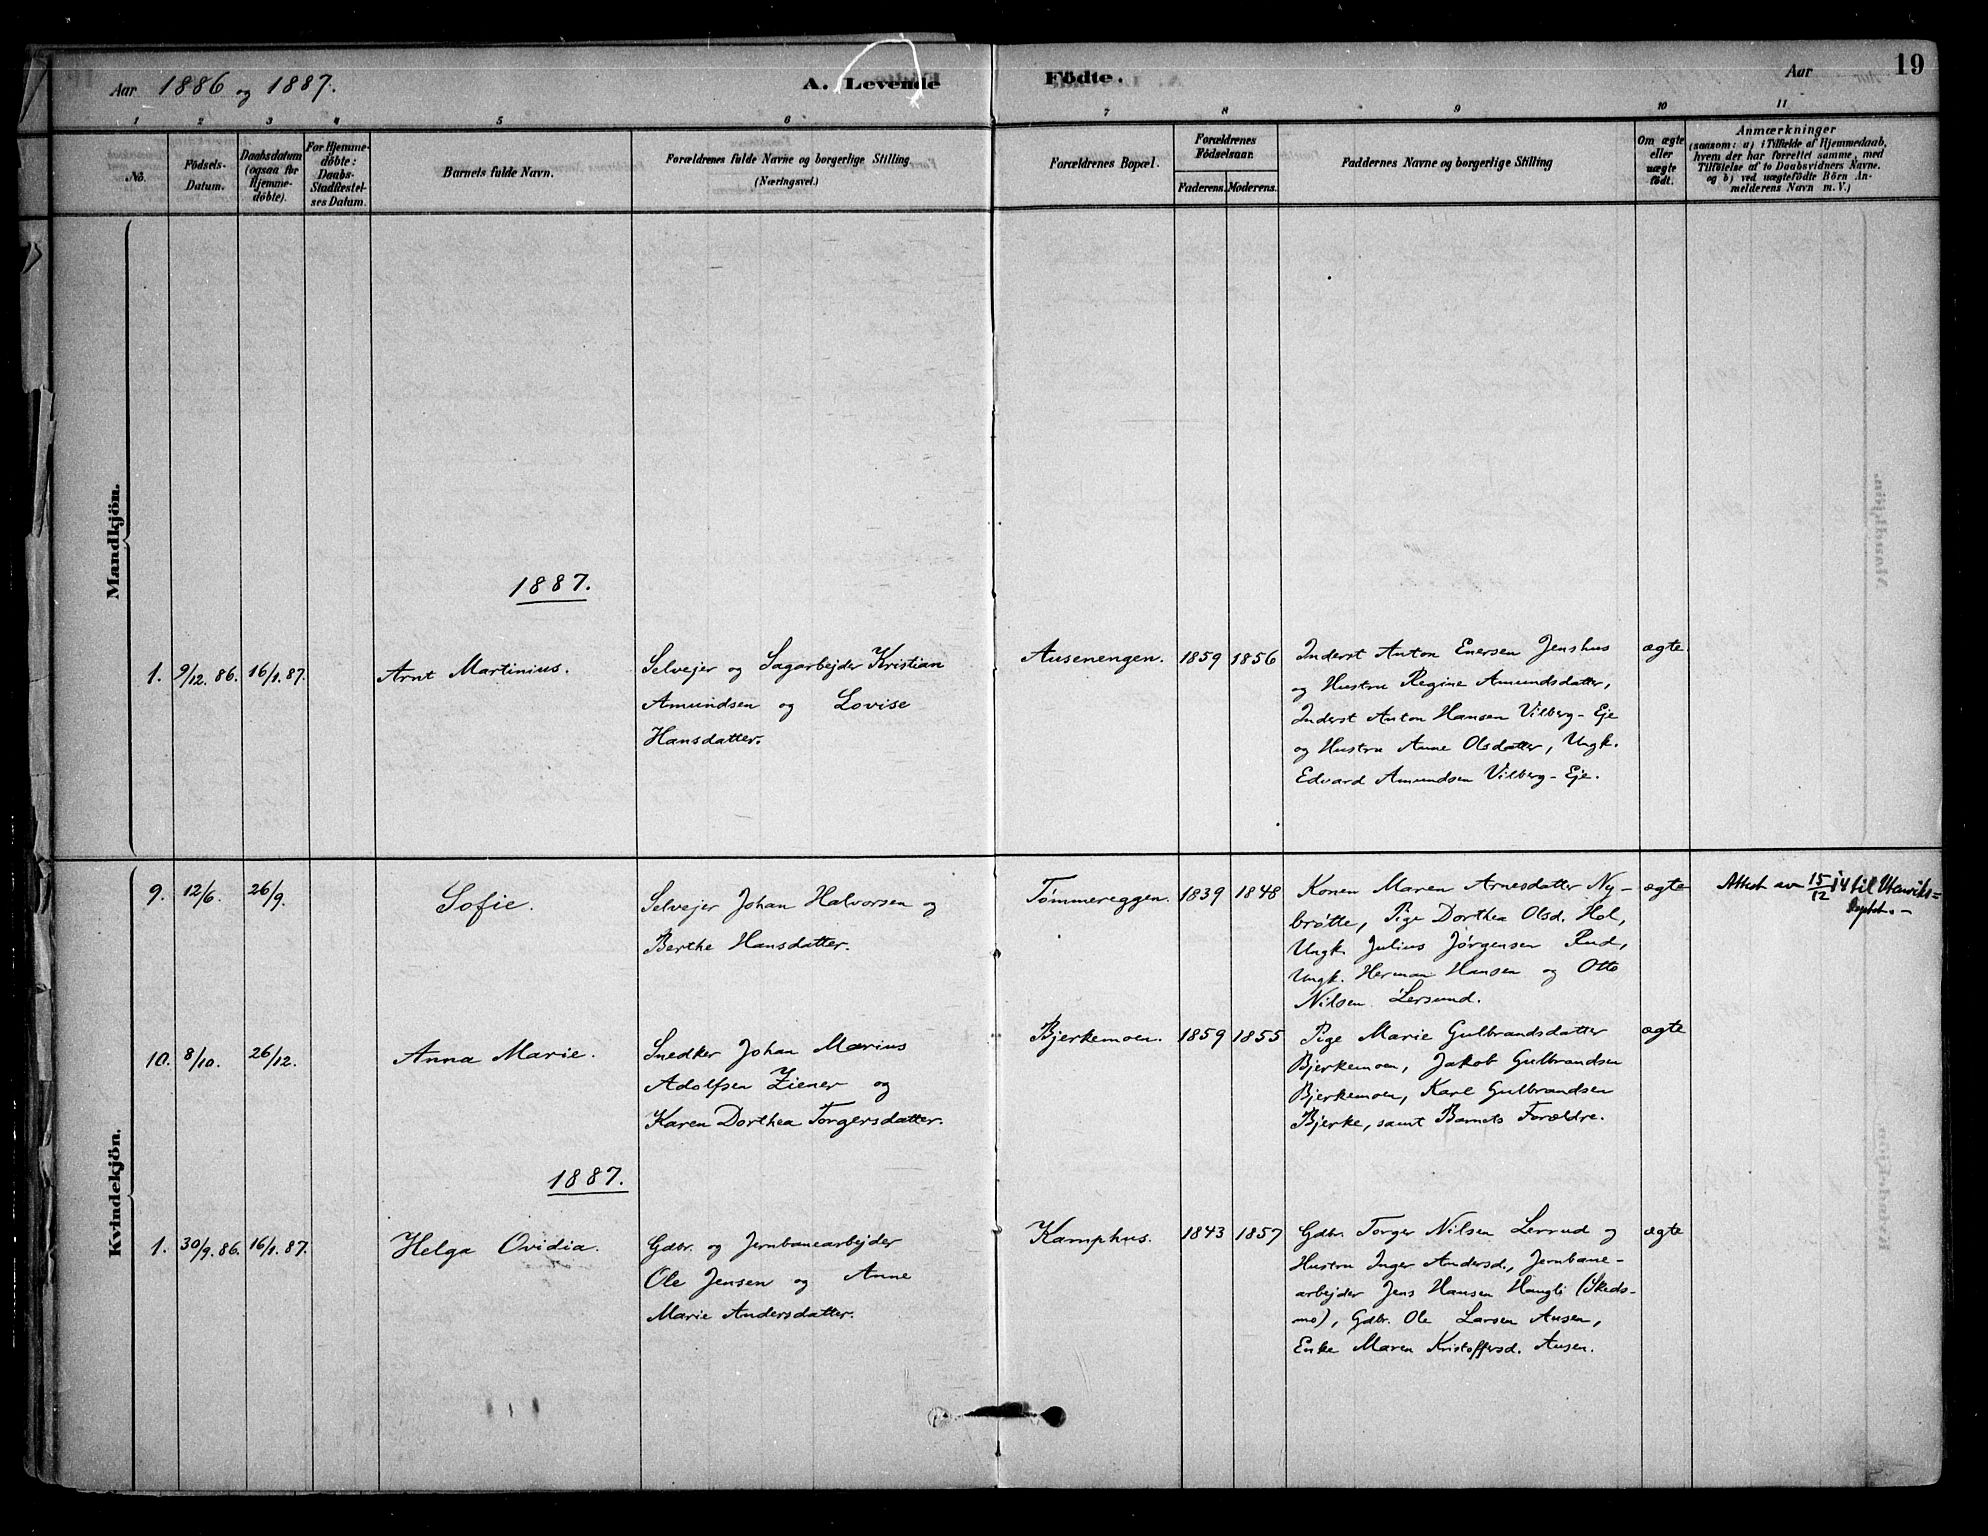 Aar 1886 og 1887.
A. Levende Födte.
Aar
19
1 2 3 4 5 6 7 8 9 10 11
No.
Födsels-
Datum.
Daabsdatum
(ogsaa for
Hjemme-
döbte).
For Hjemme-
döbte:
Daabs-
Stadfæstel-
ses Datum.
Barnets fulde Navn.
Forældrenes fulde Navne og borgerlige Stilling
(Næringsvei.)
Forældrenes Bopæl.
Forældrenes
Födselsaar.
Faderens. Moderens.
Faddernes Navne og borgerlige Stilling
Om ægte
eller
uægte
födt.
Anmærkninger
(saasom: a) i Tilfælde af Hjemmedaab,
hvem der har forrettet samme, med
Tilföielse af to Daabsvidners Navne.
og b) ved uægtefödte Börn An-
melderens Navn m. V.)
Mandkjön.
1887.
1. 9/12. 86. 16/1. 87. Arnt Martinius.
Selvejer og Sagarbejder Kristian
Amundsen og Lovise
Hansdatter.
Ausenengen. 1859 1856
Inderst Anton Enersen Jenshus
og Hustru Regine Amundsdatter,
Inderst Anton Hansen Vilberg-Eje
og Hustru Anne Olsdatter, Ungk.
Edvard Amundsen Vilberg-Eje.
ægte
Kvindekjön.
9. 12/6. 26/9. Sofie.
Selvejer Johan Halvorsen og
Berthe Hansdatter.
Tømmereggen. 1839 1848
Konen Maren Arnesdatter Ny-
brøtte, Pige Dorthea Olsd. Hol,
Ungk. Julius Jørgensen Rud,
Ungk. Herman Hansen og Otto
Nilsen Lersund.
ægte
Attest av 15/12 14 til Utenriks=
dept.-
10. 8/10. 26/12. Anna Marie.
Snedker Johan Marius
Adolfsen Ziener og
Karen Dorthea Torgersdatter.
Bjerkemoen. 1859 1855
Pige Marie Gulbrandsdatter
Bjerkemoen, Jakob Gulbrandsen
Bjerkemoen, Karl Gulbrandsen
Bjerke, samt Barnets Forældre.
ægte
1887.
1. 30/9. 86. 16/1. 87. Helga Ovidia.
Gdbr. og Jernbanearbejder
Ole Jensen og Anne
Marie Andersdatter.
Kamphus. 1843 1857
Gdbr. Torger Nilsen Lerrud og
Hustru Inger Andersd., Jernbane-
arbejder Jens Hansen Haugli (Skeds-
mo), Gdbr. Ole Larsen Ausen,
Enke Maren Kristoffersd. Ausen.
ægte